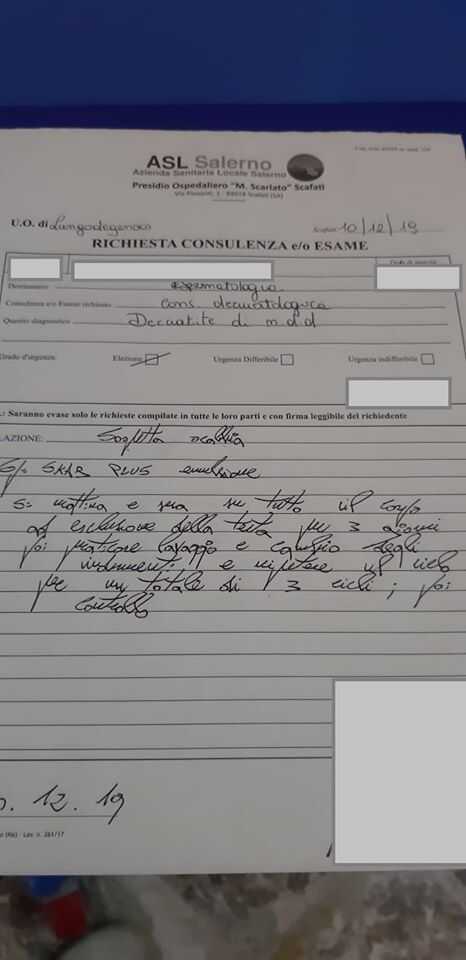 ASL Salerno
Azienda Sanitaria Locale Salerno
Presidio Ospedaliero "M. Scarlato" Scafati
U.O. di Lungodegenza
Scafati 10/12/19
RICHIESTA CONSULENZA e/o ESAME
Destinatario Dermatologia
Consulenza e/o Esame richiesto Cons. dermatologica
Quesito diagnostico Dermatite di n.d.d
Grado d'urgenza: Elezione Urgenza Differibile Urgenza indifferibile
.: Saranno evase solo le richieste compilate in tutte le loro parti e con firma leggibile del richiedente
LAZIONE: Sospetta scabbia
S/ SKAB PLUS emulsione
S= mattina e sera su tutto il corpo
ad esclusione della testa per 3 giorni
poi praticare lavaggio e cambio degli
indumenti e ripetere il ciclo
per un totale di 3 cicli; poi
controllo
. 12. 19